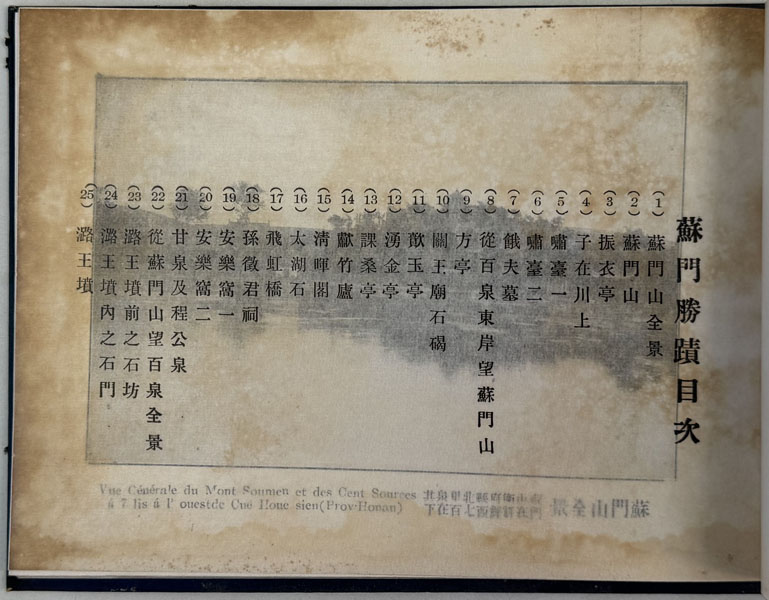 蘇門勝蹟目次
(1) 蘇門山全景
(2) 蘇門山
(3) 振衣亭
(4) 子在川上
(5) 嘯臺一
(6) 嘯臺二
(7) 餓夫墓
(8) 從百泉東岸望蘇門山
(9) 方亭
(10) 關王廟石碣
(11) 歕玉亭
(12) 湧金亭
(13) 課桑亭
(14) 獻竹廬
(15) 清暉閣
(16) 太湖石
(17) 飛虹橋
(18) 孫徵君祠
(19) 安樂窩一
(20) 安樂窩二
(21) 甘泉及程公泉
(22) 從蘇門山望百泉全景
(23) 潞王墳前之石坊
(24) 潞王墳內之石門
(25) 潞王墳
Vue Générale du Mont Soumen et des Cent Sources
á 7 lis á l' ouestde Cué Houe sien(Prov·Honan)
蘇門山全景